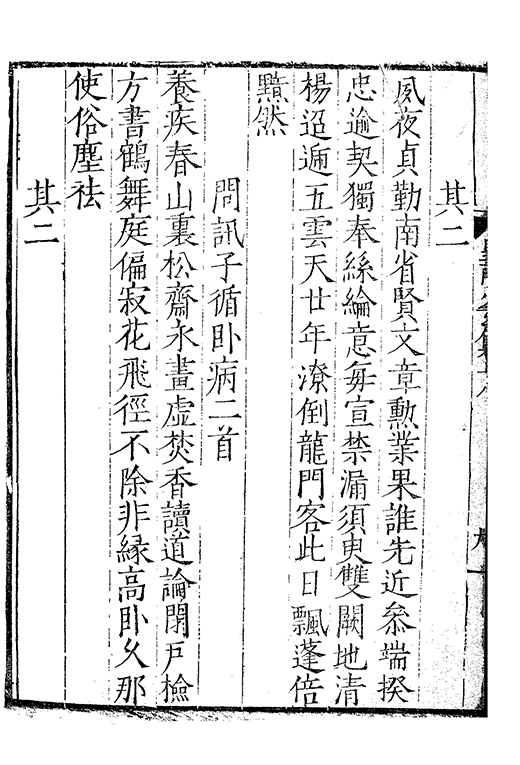 其二
夙夜貞勤南省賢文章勲業果誰先近叅端揆
忠逾契獨奉絲綸意毎宣禁漏須臾雙闕地清
楊迢遞五雲天廿年潦倒龍門客此日飄蓬倍
黯然
問訊子循卧病二首
養疾春山裏松齋永晝虛焚香讀道論閉戸檢
方書鶴舞庭偏寂花飛徑不除非緣高卧乆那
使俗塵袪
其二